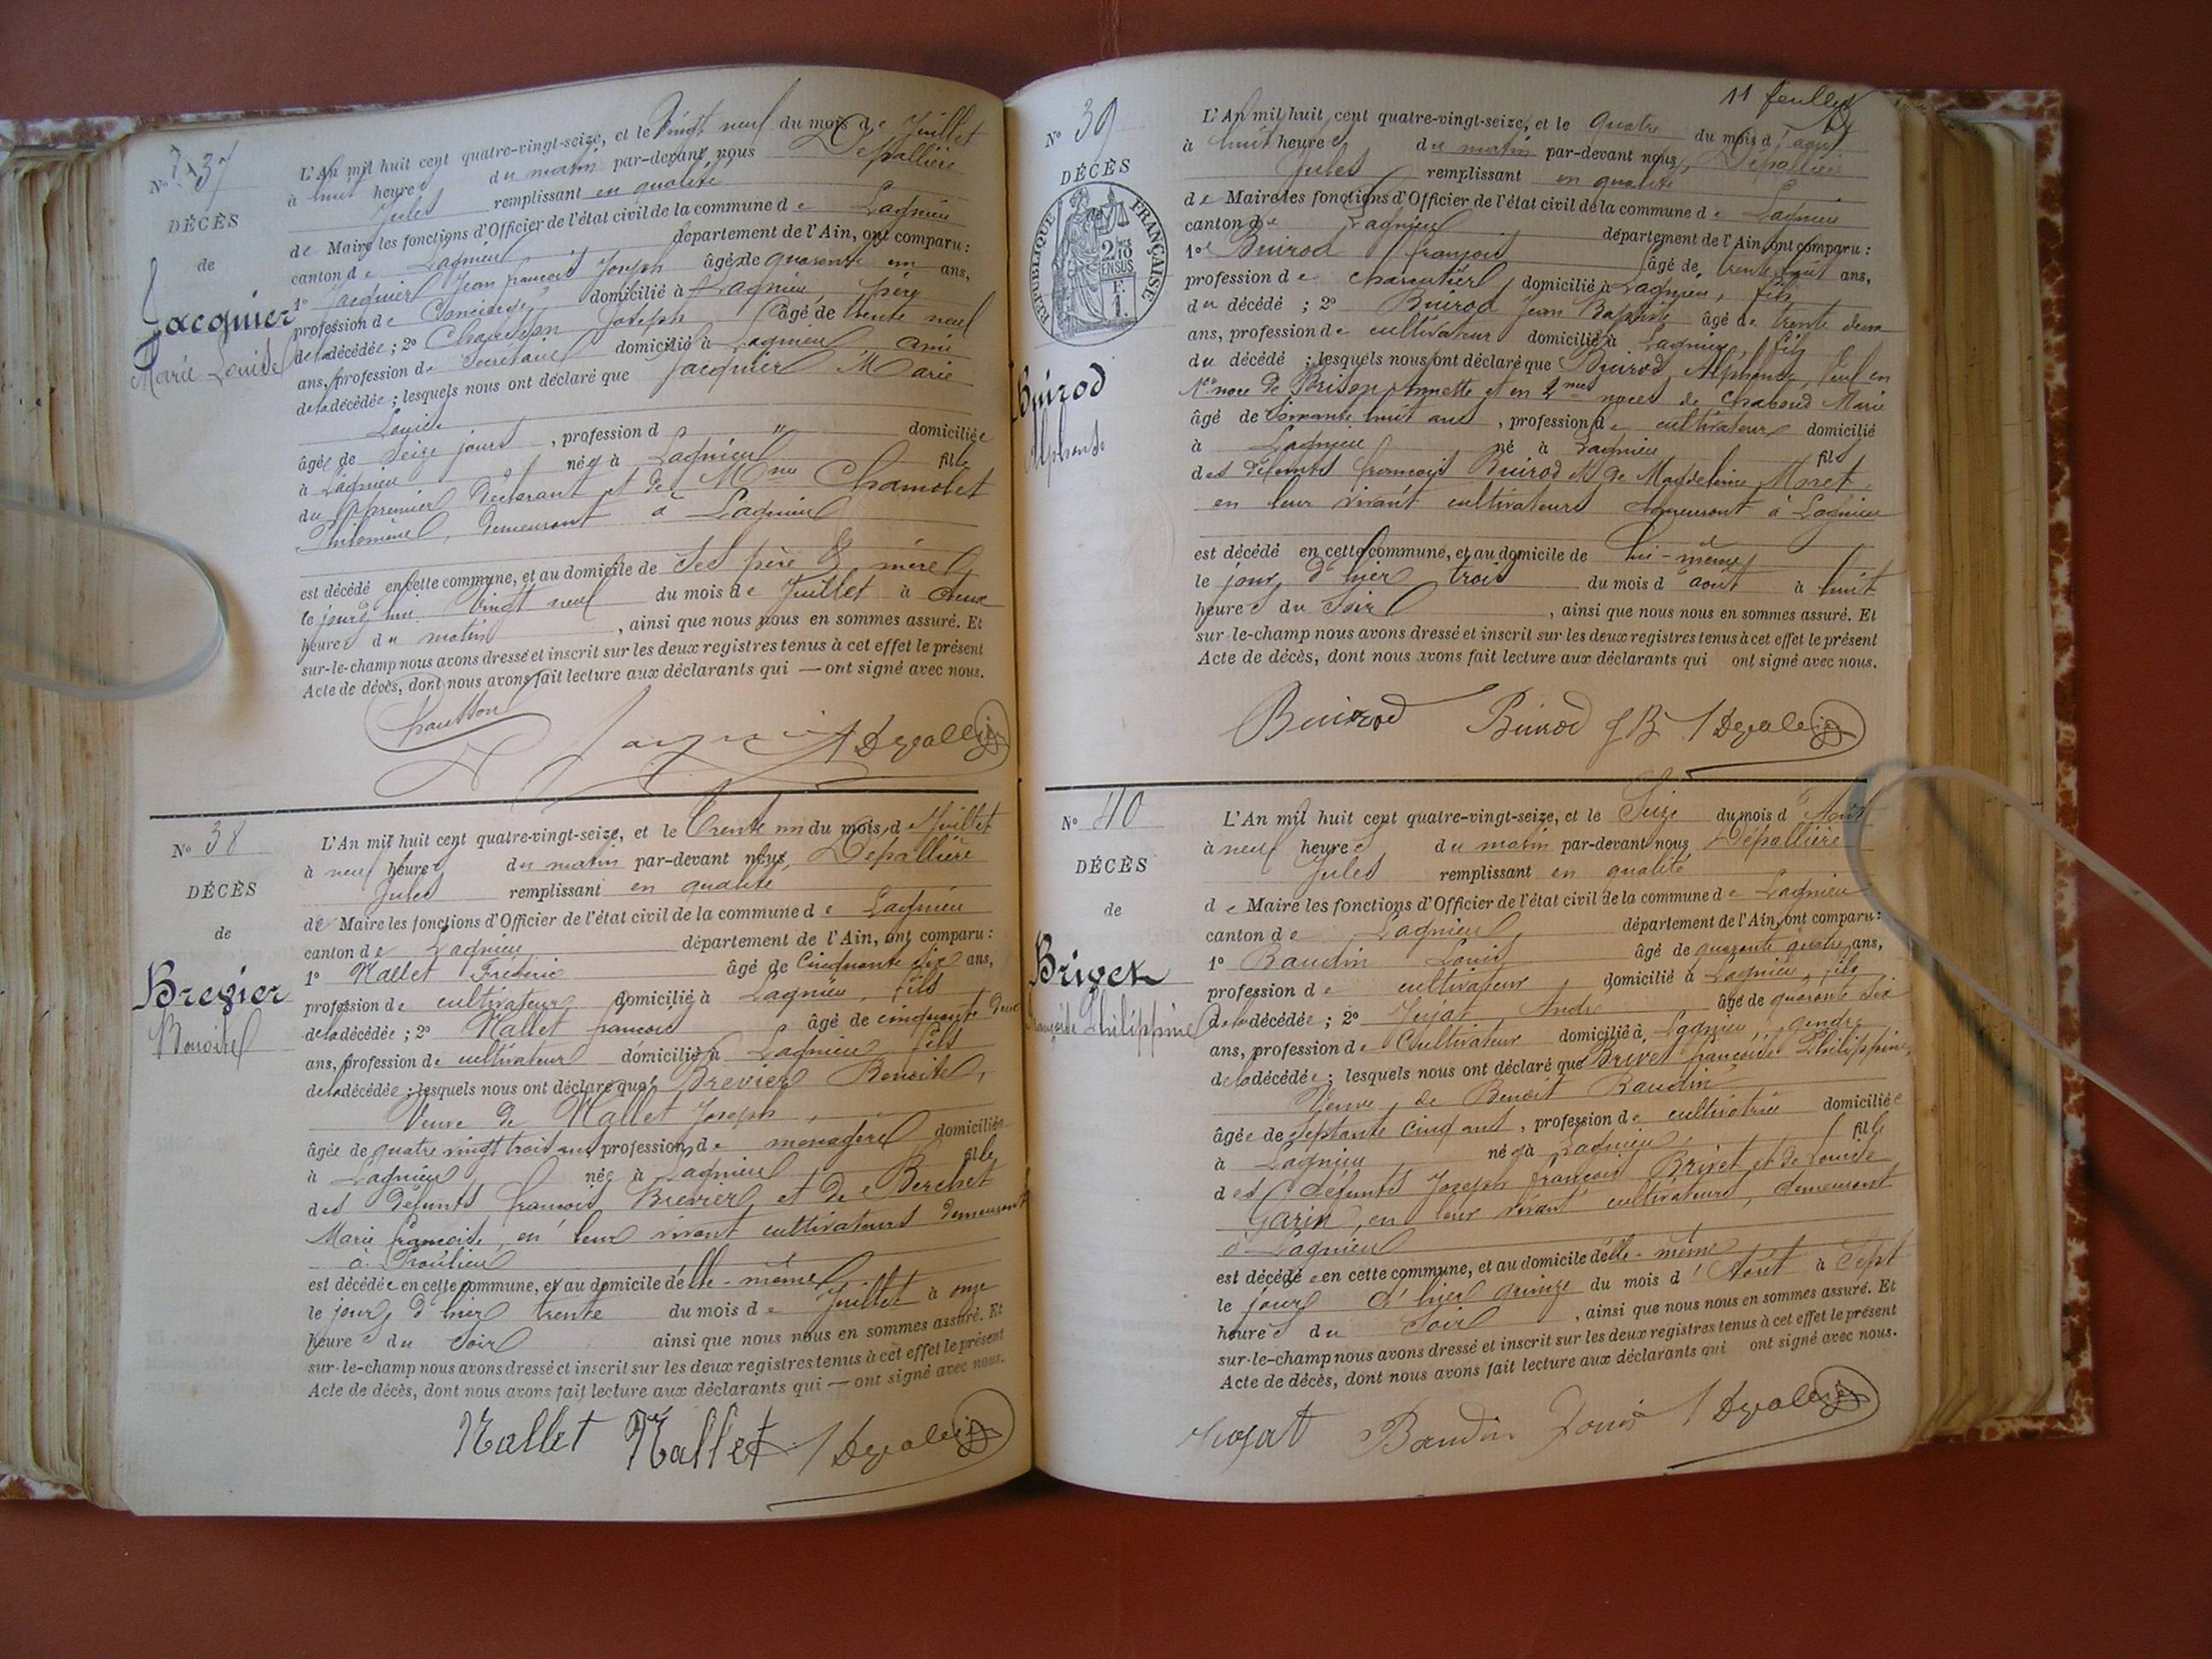 No 37
DÉCÈS
de
Jacquier
Marie Louise
L'An mil huit cent quatre-vingt-seize, et le Vingt neuf du mois de Juillet
à huit heures du matin par-devant nous Dépallière
Jules remplissant en qualité
de Maire les fonctions d'Officier de l'état civil de la commune de Lagnieu
canton de Lagnieu département de l'Ain, ont comparu :
1° Jacquier Jean françois Joseph âgé de quarante un ans,
profession de Concierge domicilié à Lagnieu, père
de la décédée ; 2° Joseph âgé de trente neuf
ans, profession de Secrétaire domicilié à Lagnieu ami
de la décédée ; lesquels nous ont déclaré que Jacquier Marie
Louise
âgée de Seize jours , profession d " domiciliée
à Lagnieu née à Lagnieu fille
du premier déclarant et de Mme Chamolet
Philomène, demeurant à Lagnieu
est décédé en cette commune, et au domicile de Ses père & mère
le jourd'hui Vingt neuf du mois de Juillet à deux
heures du matin , ainsi que nous nous en sommes assuré. Et
sur-le-champ nous avons dressé et inscrit sur les deux registres tenus à cet effet le présent
Acte de décès, dont nous avons fait lecture aux déclarants qui — ont signé avec nous.
Jacquier J Depallière
No 38
DÉCÈS
de
Brevier
Benoite
L'An mil huit cent quatre-vingt-seize, et le Trente un du mois de Juillet
à neuf heures du matin par-devant nous, Dépallière
Jules remplissant en qualité
de Maire les fonctions d'Officier de l'état civil de la commune de Lagnieu
canton de Lagnieu département de l'Ain, ont comparu :
1° Nallet Frédéric âgé de Cinquante six ans,
profession de cultivateur domicilié à Lagnieu, fils
de la décédée ; 2° Nallet françois âgé de cinquante deux
ans, profession de cultivateur domicilié à Lagnieu fils
de la décédée ; lesquels nous ont déclaré que Brevier Benoite,
Veuve de Nallet Joseph
âgée de quatre vingt trois ans profession de ménagère domiciliée
à Lagnieu née à Lagnieu fille
des défunts françois Brevier et de Berchet
Marie françoise, en leur vivant cultivateurs demeurant
à Proulieu
est décédée en cette commune, et au domicile d'elle-même
le jour d'hier trente du mois de Juillet à onze
heures du Soir ainsi que nous nous en sommes assuré. Et
sur-le-champ nous avons dressé et inscrit sur les deux registres tenus à cet effet le présent
Acte de décès, dont nous avons fait lecture aux déclarants qui — ont signé avec nous.
Nallet Nallet J Depallière
11 feuillet
No 39
DÉCÈS
RÉPUBLIQUE FRANÇAISE
2 10
EN SUS
F.
1.
Buirod
Alphonse
L'An mil huit cent quatre-vingt-seize, et le Quatre du mois d'août
à huit heures du matin par-devant nous, Dépallière
Jules remplissant en qualité
de Maire les fonctions d'Officier de l'état civil de la commune de Lagnieu
canton de Lagnieu département de l'Ain, ont comparu :
1° Buirod françois âgé de trente huit ans,
profession de charcutier, domicilié à Lagnieu, fils
du décédé ; 2° Buirod Jean Baptiste âgé de trente deux
ans, profession de cultivateur domicilié à Lagnieu, fils
du décédé ; lesquels nous ont déclaré que Buirod Alphonse, Veuf en
1ère noce de Brison Annette et en 2mes noces de Chaboud Marie
âgé de Soixante huit ans , profession de cultivateur domicilié
à Lagnieu né à Lagnieu fils
des défunts françois Buirod & de Magdeleine Moret
en leur vivant cultivateurs demeurant à Lagnieu
est décédé en cette commune, et au domicile de lui-même
le jour d'hier trois du mois d'août à huit
heures du Soir , ainsi que nous nous en sommes assuré. Et
sur-le-champ nous avons dressé et inscrit sur les deux registres tenus à cet effet le présent
Acte de décès, dont nous avons fait lecture aux déclarants qui ont signé avec nous.
Buirod Buirod J B J Depallière
No 40
DÉCÈS
de
Brivet
françoise Philippine
L'An mil huit cent quatre-vingt-seize, et le Seize du mois d'Août
à neuf heures du matin par-devant nous Dépallière
Jules remplissant en qualité
de Maire les fonctions d'Officier de l'état civil de la commune de Lagnieu
canton de Lagnieu, département de l'Ain, ont comparu :
1° Baudin Louis âgé de quarante quatre ans,
profession de cultivateur domicilié à Lagnieu, fils
de la décédée ; 2° Jujat André âgé de quarante six
ans, profession de Cultivateur domicilié à Lagnieu, gendre
de la décédée ; lesquels nous ont déclaré que Brivet françoise Philippine,
Veuve de Benoit Baudin
âgée de Septante Cinq ans , profession de cultivatrice domiciliée
à Lagnieu née à Lagnieu fille
des défunts Joseph françois Brivet et de Louise
Garin, en leur vivant cultivateurs, demeurant
à Lagnieu
est décédée en cette commune, et au domicile d'elle-même
le jour d'hier quinze du mois d'Août à Sept
heures du Soir , ainsi que nous nous en sommes assuré. Et
sur-le-champ nous avons dressé et inscrit sur les deux registres tenus à cet effet le présent
Acte de décès, dont nous avons fait lecture aux déclarants qui ont signé avec nous.
Baudin Louis J Depallière